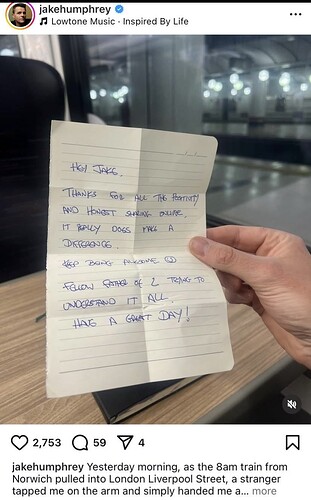 jakehumphrey
Lowtone Music · Inspired By Life
HEY JAKE,
THANKS FOR ALL THE POSITIVITY
AND HONEST SHARING ONLINE.
IT REALLY DOES MAKE A
DIFFERENCE.
KEEP BEING AWESOME
FELLOW FATHER OF 2 TRYING TO
UNDERSTAND IT ALL.
HAVE A GREAT DAY!
2,753
59
4
jakehumphrey Yesterday morning, as the 8am train from
Norwich pulled into London Liverpool Street, a stranger
tapped me on the arm and simply handed me a... more